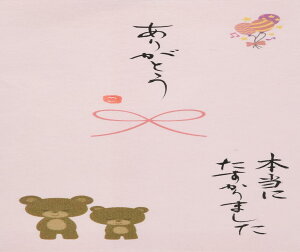 ありがとう
本当に
たすかりました